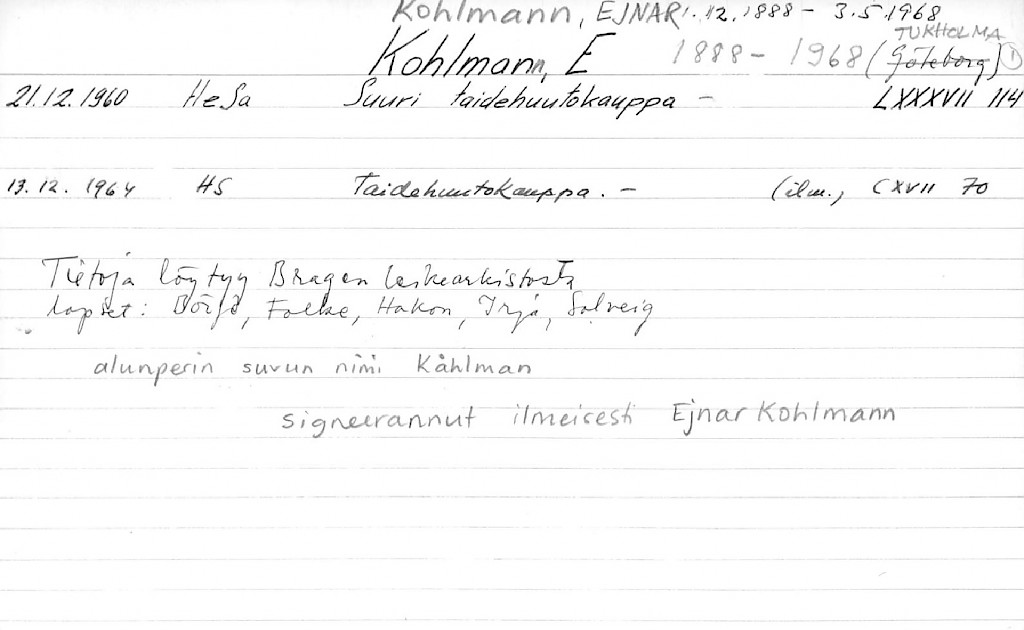 Kohlmann, EJNAR 1.12.1888 - 3.5.1968
TUKHOLMA
Kohlmann, E 1888 - 1968 (Göteborg) 1
21.12.1960 HeSa Suuri taidehuutokauppa - LXXXVII 114
13.12.1964 HS Taidehuutokauppa. - (ilm., CXVII 70
Tietoja löytyy Bragen leikearkistosta
lapset: Folke, Hakon, Solveig
alunperin suvun nimi Kåhlman
signeerannut ilmeisesti Ejnar Kohlmann